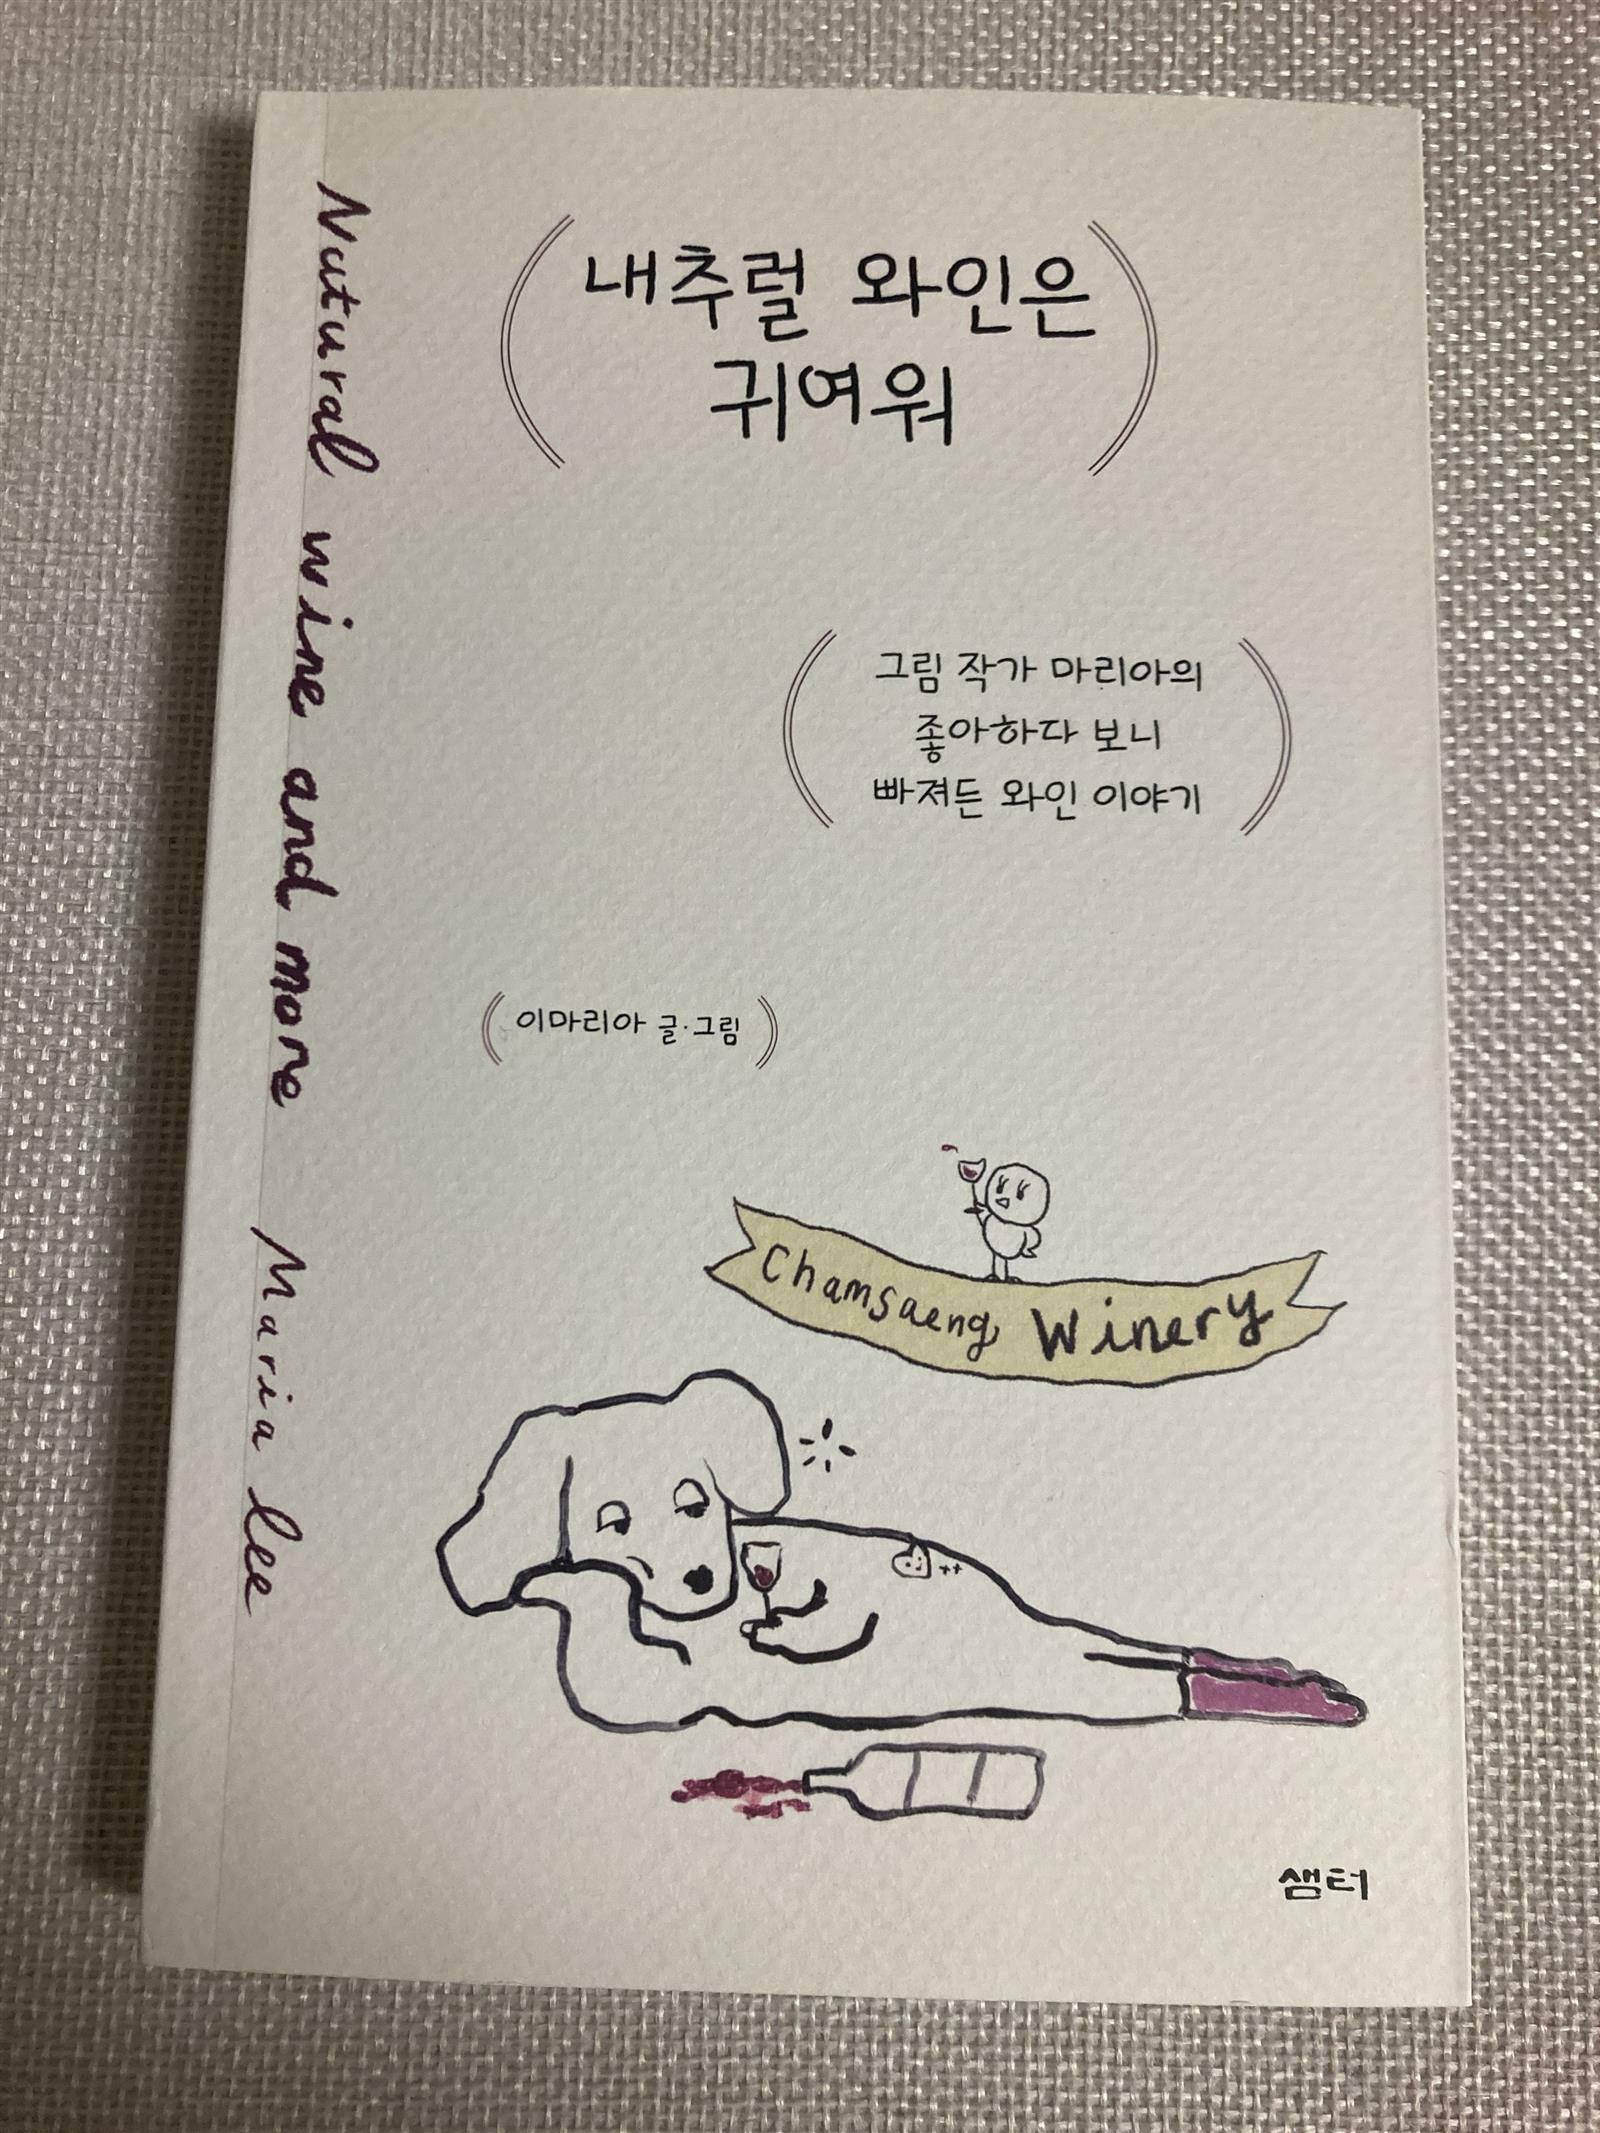 내추럴 와인은
귀여워
그림 작가 마리아의
좋아하다 보니
빠져든 와인 이야기
이마리아 글·그림
Natural wine and more Maria lee
Chamsaeng Winery
샘터